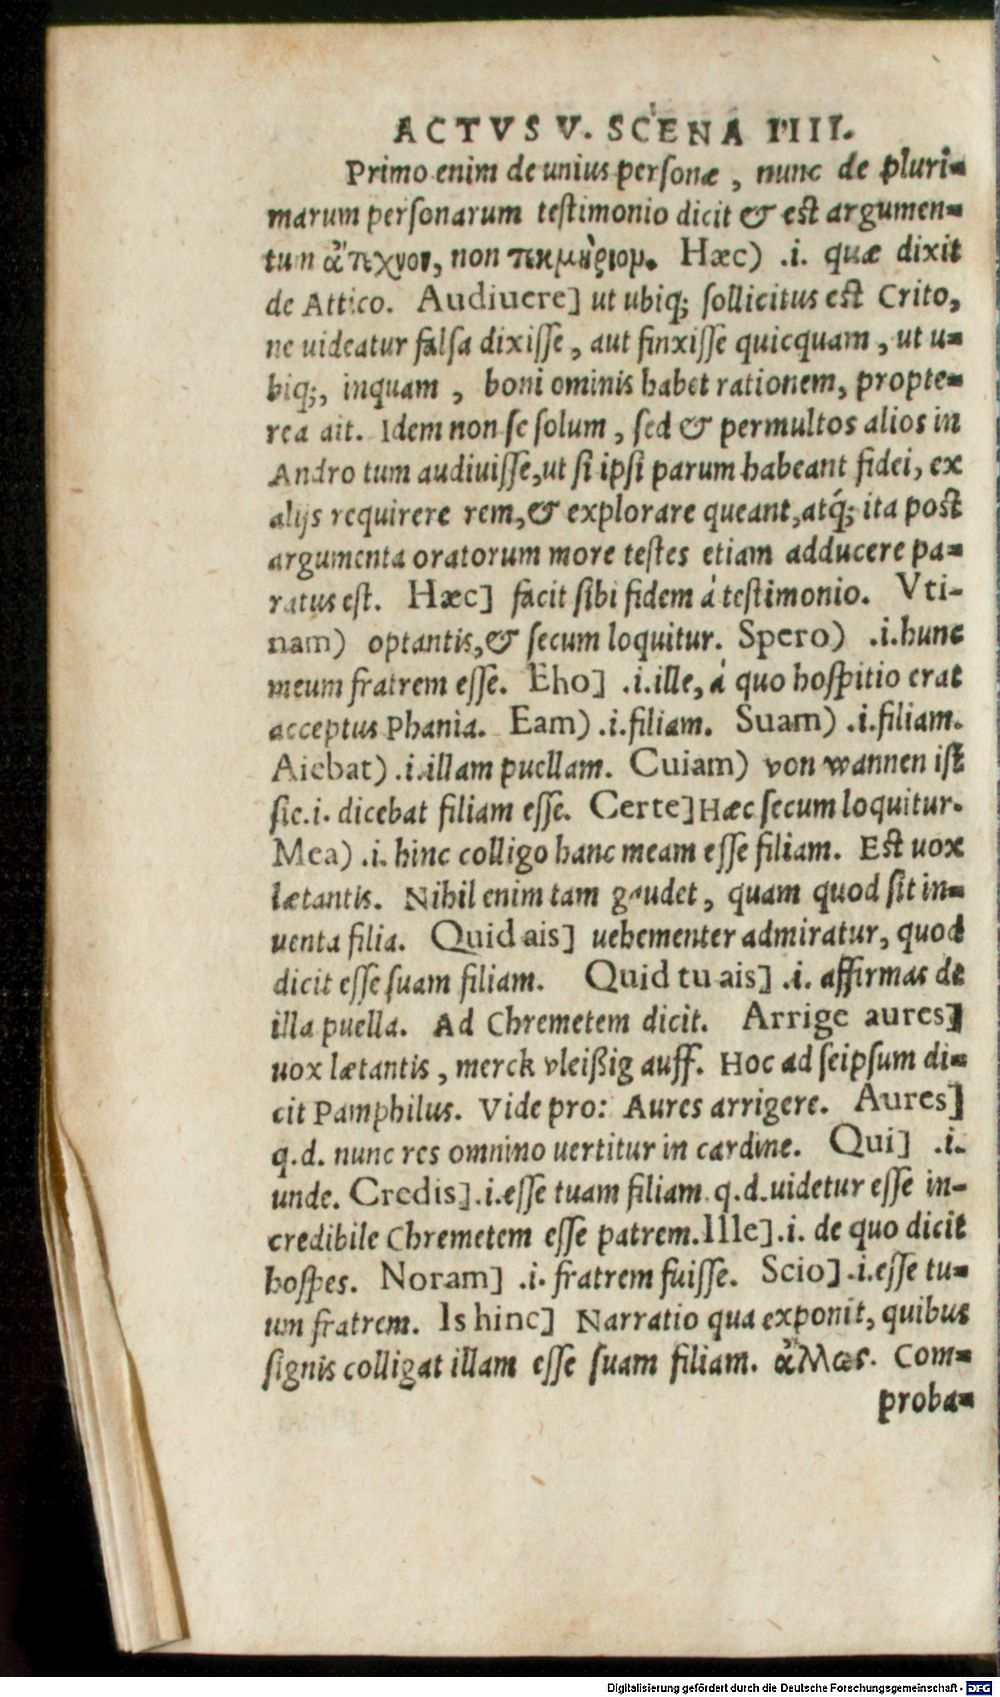 ACTVS V. SCENA IIII.
Primo enim de unius personæ, nunc de pluri-
marum personarum testimonio dicit & est argumen-
tum ἄτεχνον, non τεκμήριομ. Hæc) .i. quæ dixit
de Attico. Audiuere] ut ubiq; sollicitus est Crito,
ne uideatur falsa dixisse, aut finxisse quicquam, ut u-
biq;, inquam, boni ominis habet rationem, propte-
rea ait. Idem non se solum, sed & permultos alios in
Andro tum audiuisse, ut si ipsi parum habeant fidei, ex
alijs requirere rem, & explorare queant, atq́; ita post
argumenta oratorum more testes etiam adducere pa-
ratus est. Hæc] facit sibi fidem á testimonio. Vti-
nam) optantis, & secum loquitur. Spero) .i. hunc
meum fratrem esse. Eho] .i. ille, á quo hospitio erat
acceptus Phania. Eam) .i. filiam. Suam) .i. filiam.
Aiebat) .i. illam puellam. Cuiam) von wannen ist
sie .i. dicebat filiam esse. Certe] Hæc secum loquitur.
Mea) .i. hinc colligo hanc meam esse filiam. Est uox
lætantis. Nihil enim tam gaudet, quam quod sit in-
uenta filia. Quid ais] uehementer admiratur, quod
dicit esse suam filiam. Quid tu ais] .i. affirmas de
illa puella. Ad Chremetem dicit. Arrige aures]
uox lætantis, merck vleißig auff. Hoc ad seipsum di-
cit Pamphilus. Vide pro: Aures arrigere. Aures]
q.d. nunc res omnino uertitur in cardine. Qui] .i.
unde. Credis] .i. esse tuam filiam. q.d. uidetur esse in-
credibile Chremetem esse patrem. Ille] .i. de quo dicit
hospes. Noram] .i. fratrem fuisse. Scio] .i. esse tu-
um fratrem. Is hinc] Narratio qua exponit, quibus
signis colligat illam esse suam filiam. ἄλλως. Com-
proba-
Digitalisierung gefördert durch die Deutsche Forschungsgemeinschaft - DFG